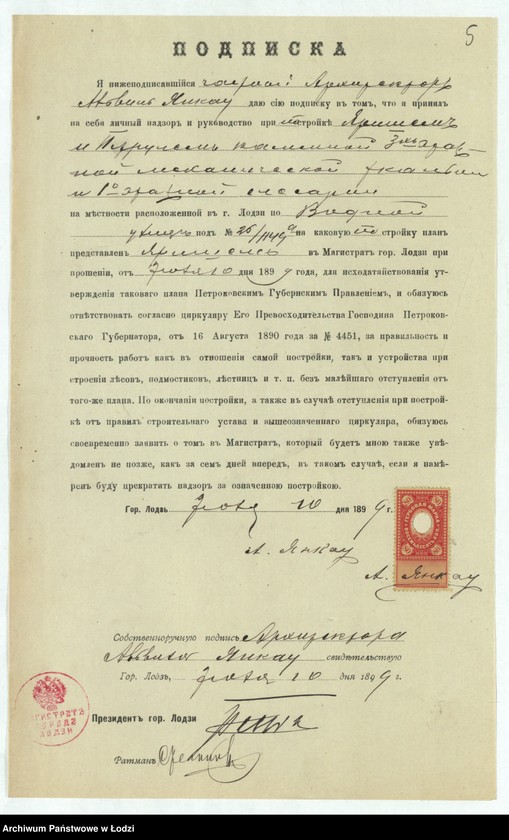 5
ПОДПИСКА
Я нижеподписавшійся Архитекторъ
Янкау даю сію подписку въ томъ, что я принялъ
на себя личный надзоръ и руководство при постройкѣ
и каменной 3хъ этаж-
ной механической ткальни
и 1о этажной слесарни
на мѣстности расположенной въ г. Лодзи по Водной
улицѣ подъ № 26/1149а на каковую по стройку планъ
представленъ въ Магистратъ гор. Лодзи при
прошеніи, отъ Іюля 10 дня 1899 года, для исходатайствованія ут-
вержденія таковаго плана Петроковскимъ Губернскимъ Правленіемъ, и обязуюсь
отвѣтствовать согласно циркуляру Его Превосходительства Господина Петроков-
скаго Губернатора, отъ 16 Августа 1890 года за № 4451, за правильность и
прочность работъ какъ въ отношеніи самой постройки, такъ и устройства при
строеніи лѣсовъ, подмостиковъ, лѣстницъ и т. п. безъ малѣйшаго отступленія отъ
того-же плана. По окончаніи постройки, а также въ случаѣ отступленія при построй-
кѣ отъ правилъ строительнаго устава и вышеозначеннаго циркуляра, обязуюсь
своевременно заявить о томъ въ Магистратъ, который будетъ мною также увѣ-
домленъ не позже, какъ за семь дней впередъ, въ такомъ случаѣ, если я намѣ-
ренъ буду прекратить надзоръ за означенною постройкою.
Гор. Лодзь Іюля 10 дня 1899 г.
А. Янкау
А. Янкау
Собственноручную подпись Архитектора
Янкау свидѣтельствую
Гор. Лодзь, Іюля 10 дня 1899 г.
МАГИСТРАТЪ
ГОРОДА
ЛОДЗИ
Президентъ гор. Лодзи
Ратманъ
Archiwum Państwowe w Łodzi